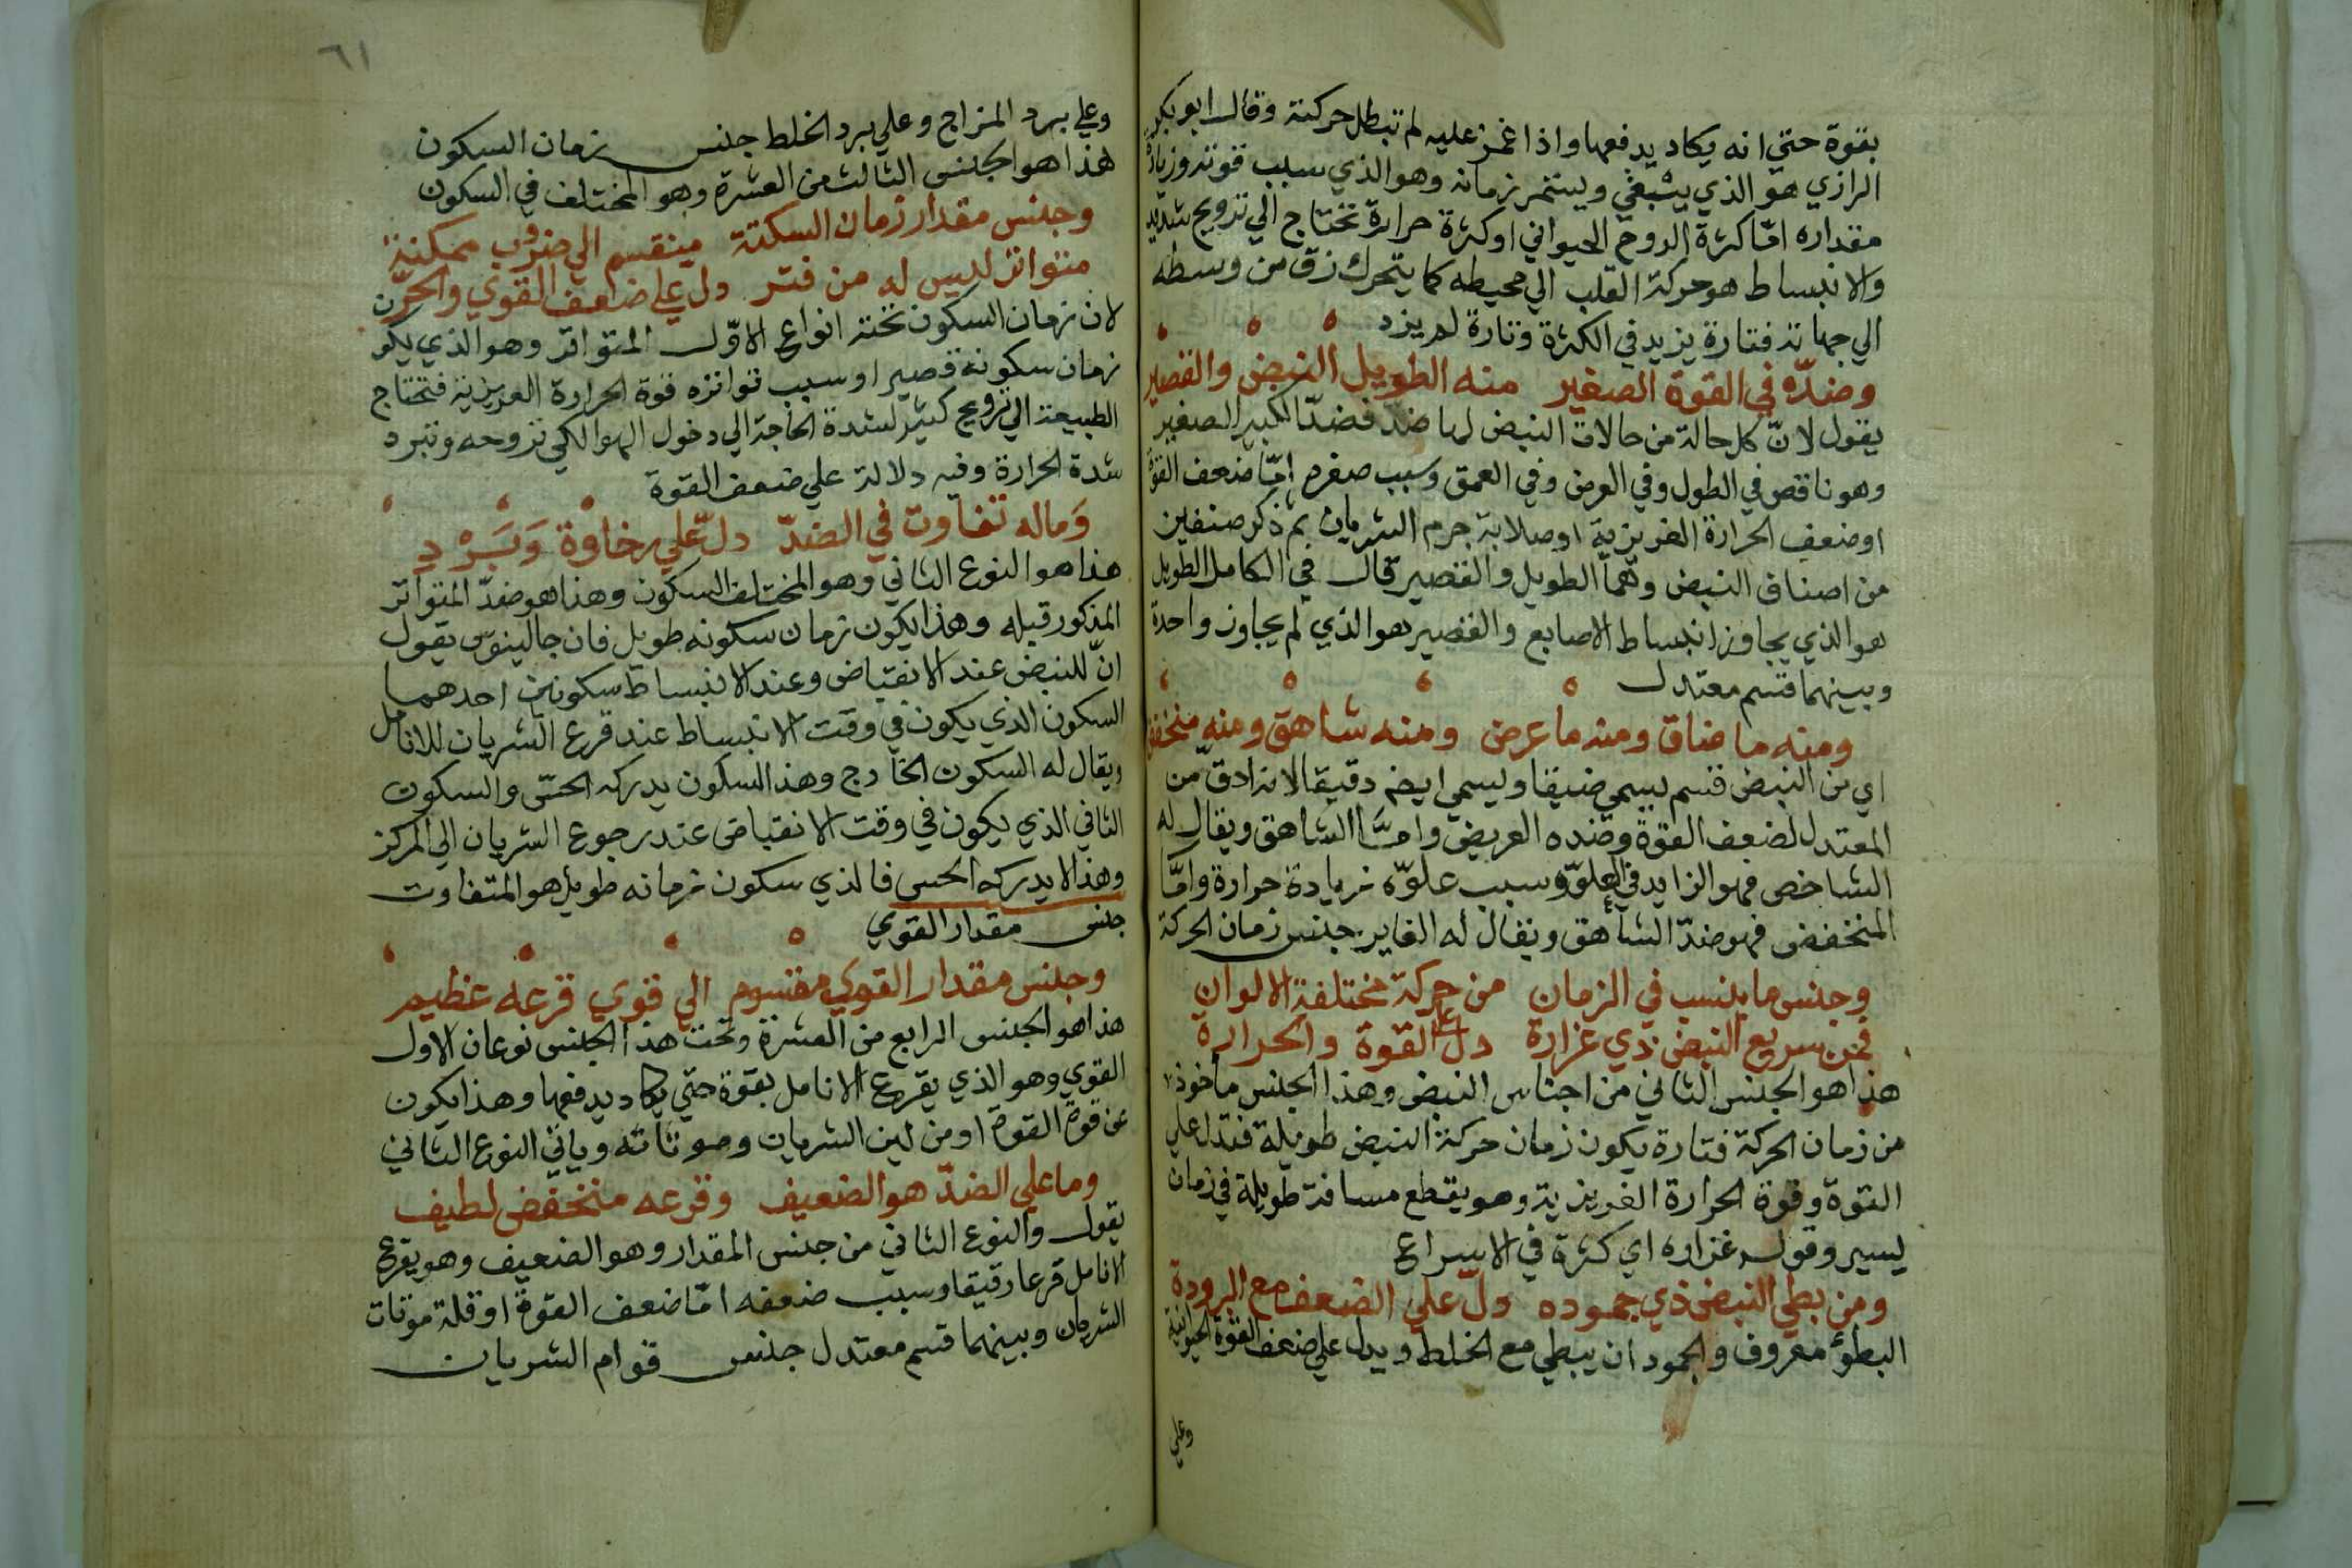 بقوة حتي انه يكاد يدفعها واذا غمز عليه لم تبطل حركته وقال ابو بكر
الرازي هو الذي ويستمر زمانه وهو الذي سبب قوته وزيادة
مقداره امّا كثرة الروح الحيواني او كثرة حرارة تحتاج الي ترويح شديد
والانبساط هو حركة القلب الي محيطه كما يتحرك زق من وسطه
الي جهاته فتارة يزيد في الكثرة وتارة لم يزد
وضدّه في القوة الصغير منه الطويل النبض والقصير
يقول لانّ كل حالة من حالات النبض لها ضدّ فضدّ الكبير الصغير
وهو ناقص في الطول وفي العرض وفي العمق وسبب صغره امّا ضعف القوة
او ضعف الحرارة الغريزية او صلابة جرم الشريان ثم ذكر صنفين
من اصناف النبض وهما الطويل والقصير قال في الكامل الطويل
هو الذي يجاوز انبساط الاصابع والقصير هو الذي لم يجاوز واحدة
وبينهما قسم معتدل
ومنه ما ضاق ومنه ما عرض ومنه شاهق ومنه منخفض
اي من النبض قسم يسمي ضيقا ويسمي ايضه دقيقا لانه ادق من
المعتدل لضعف القوة وضده العريض وامّا الشاهق ويقال له
الشاخص فهو الزايد في العلوّ وسبب علوّه زيادة حرارة وامّا
المنخفض فهو ضدّ الشاهق ويقال له الغاير جنس زمان الحركة
وجنس ما ينسب في الزمان من حركة مختلفة الالوان
فمن سريع النبض ذي غزارة دل علي القوة والحرارة
هذا هو الجنس الثاني من اجناس النبض وهذا الجنس ماخوذ
من زمان الحركة فتارة يكون زمان حركة النبض طويلة فتدل علي
القوة وقوة الحرارة الغريزية وهو يقطع مسافة طويلة في زمان
يسير وقوله غزاره اي كثرة في الاسراع
ومن بطي النبض ذي جموده دلّ علي الضعف مع البرودة
البطؤ معروف والجمود ان يبطي مع الخلط ويدل علي ضعف القوة الحيوانية
وعلي
٦١
وعلي برد المزاج وعلي برد الخلط جنس زمان السكون
هذا هو الجنس الثالث من العشرة وهو المختلف في السكون
وجنس مقدار زمان السكتة مينقسم الي ضروب ممكنة
متواتر ليس له من فتر دل علي ضعف القوي والحرّ
لان زمان السكون تحته انواع الاوّل المتواتر وهو الذي يكون
زمان سكونه قصير او سبب تواتره قوة الحرارة الغريزية فتحتاج
الطبيعة الي ترويح كثير لشدة الحاجة الي دخول الهوا لكي تروحه وتبرد
شدة الحرارة وفيه دلالة علي ضعف القوة
وَماله تفاوت في الضدّ دلّ علي رخاوة وَبَرْدِ
هذا هو النوع الثاني وهو المختلف السكون وهذا هو ضدّ المتواتر
المذكور قبله وهذا يكون زمان سكونه طويل فان جالينوس يقول
انّ للنبض عند الانقباض وعند الانبساط سكونين احدهما
السكون الذي يكون في وقت الانبساط عند قرع الشريان للانامل
ويقال له السكون الخارج وهذا السكون يدركه الحسّ والسكون
الثاني الذي يكون في وقت الانقباض عند رجوع الشريان الي المركز
وهذا لا يدركه الحس فالذي سكون زمانه طويل هو المتفاوت
جنس مقدار القوي
وجنس مقدار القوي مقسوم الي قوي قرعه عظيم
هذا هو الجنس الرابع من العشرة وتحت هذا الجنس نوعان الاول
القوي وهو الذي يقرع الانامل بقوة حتي يكاد يدفعها وهذا يكون
عن قوة القوة او من لين الشريان ويأتي النوع الثاني
وما علي الضدّ هو الضعيف وقرعه منخفض لطيف
يقول والنوع الثاني من جنس المقدار وهو الضعيف وهو يقرع
الانامل قرعا رقيقا وسبب ضعفه امّا ضعف القوة او قلة
الشريان وبينهما قسم معتدل جنس قوام الشريان